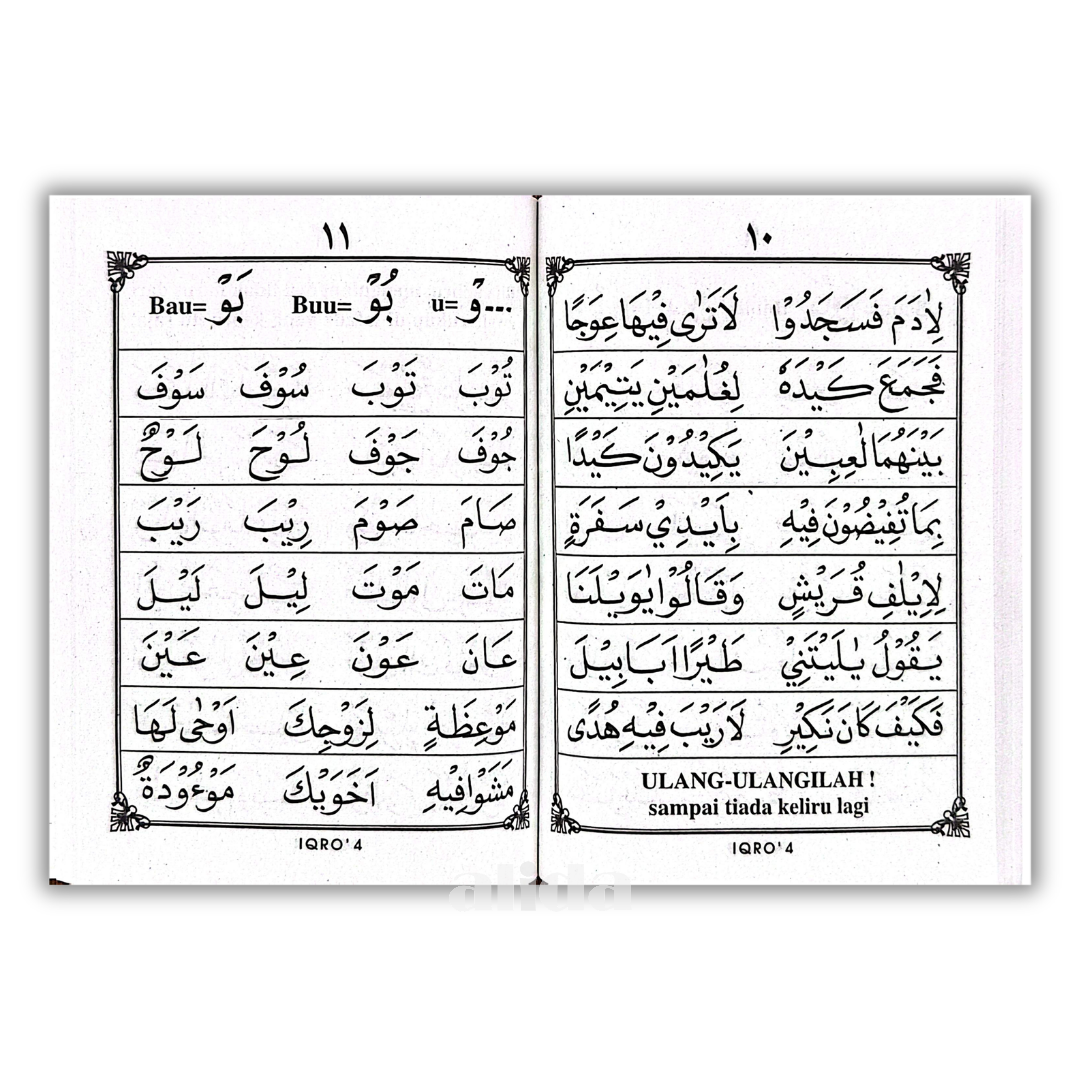 ١٠
لِاٰدَمَ فَسَجَدُوْا لَاتَرٰى فِيْهَا عِوَجًا
فَجَمَعَ كَيْدَهٗ لِغُلٰمَيْنِ يَتِيْمَيْنِ
بَيْنَهُمَا لٰعِبِيْنَ يَكِيْدُوْنَ كَيْدًا
بِمَا تُفِيْضُوْنَ فِيْهِ بِاَيْدِيْ سَفَرَةٍ
لِاِيْلٰفِ قُرَيْشٍ وَقَالُوْا يٰوَيْلَنَا
يَقُوْلُ يٰلَيْتَنِيْ طَيْرًا اَبَابِيْلَ
فَكَيْفَ كَانَ نَكِيْرِ لَارَيْبَ فِيْهِ هُدًى
ULANG-ULANGILAH !
sampai tiada keliru lagi
IQRO' 4
١١
...وْ =u بُوْ =Buu بَوْ =Bau
تُوْبَ تَوْبَ سُوْفَ سَوْفَ
جُوْفَ جَوْفَ لُوْحَ لَوْحٌ
صَامَ صَوْمَ رِيْبَ رَيْبَ
مَاتَ مَوْتَ لِيْلَ لَيْلَ
عَانَ عَوْنَ عِيْنَ عَيْنَ
مَوْعِظَةٍ لِزَوْجِكَ اَوْحٰى لَهَا
مَشَوْافِيْهِ اَخَوَيْكَ مَوْءُوْدَةٌ
IQRO' 4
alida